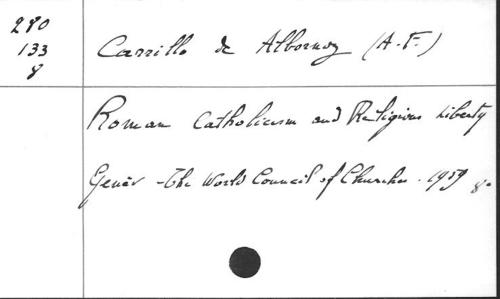 280
133
8
Carrillo de Albornoz (A.F.)
Roman Catholicism and Religious Liberty
Genèv - The World Council of Churches. 1959 8°